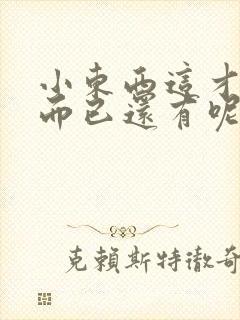 小東西這才
而已還有呢
克賴斯特徹奇